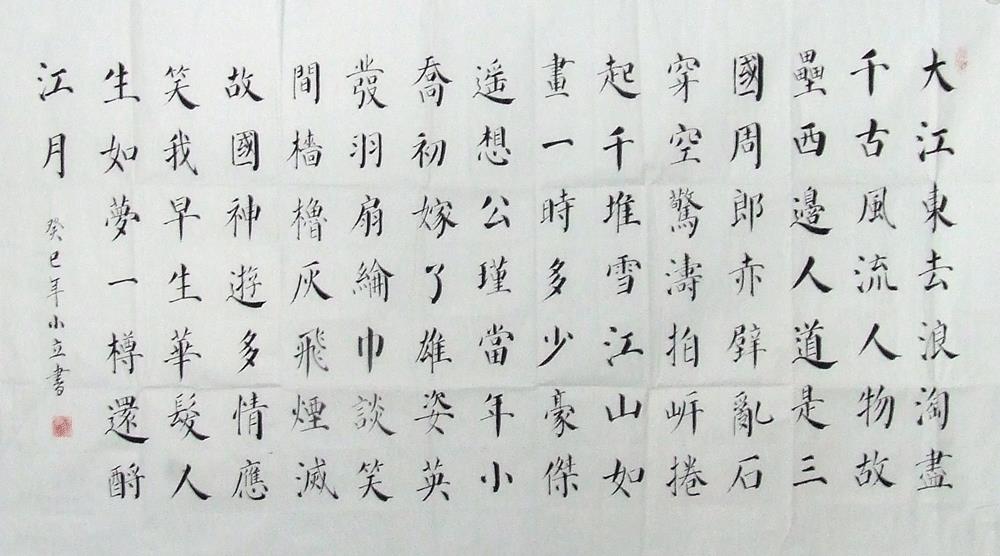 大江東去浪淘盡
千古風流人物故
壘西邊人道是三
國周郎赤壁亂石
穿空驚濤拍岍捲
起千堆雪江山如
畫一時多少豪傑
遥想公瑾當年小
喬初嫁了雄姿英
發羽扇綸巾談笑
間檣櫓灰飛煙滅
故國神遊多情應
笑我早生華髮人
生如夢一樽還酹
江月
癸巳年小立書